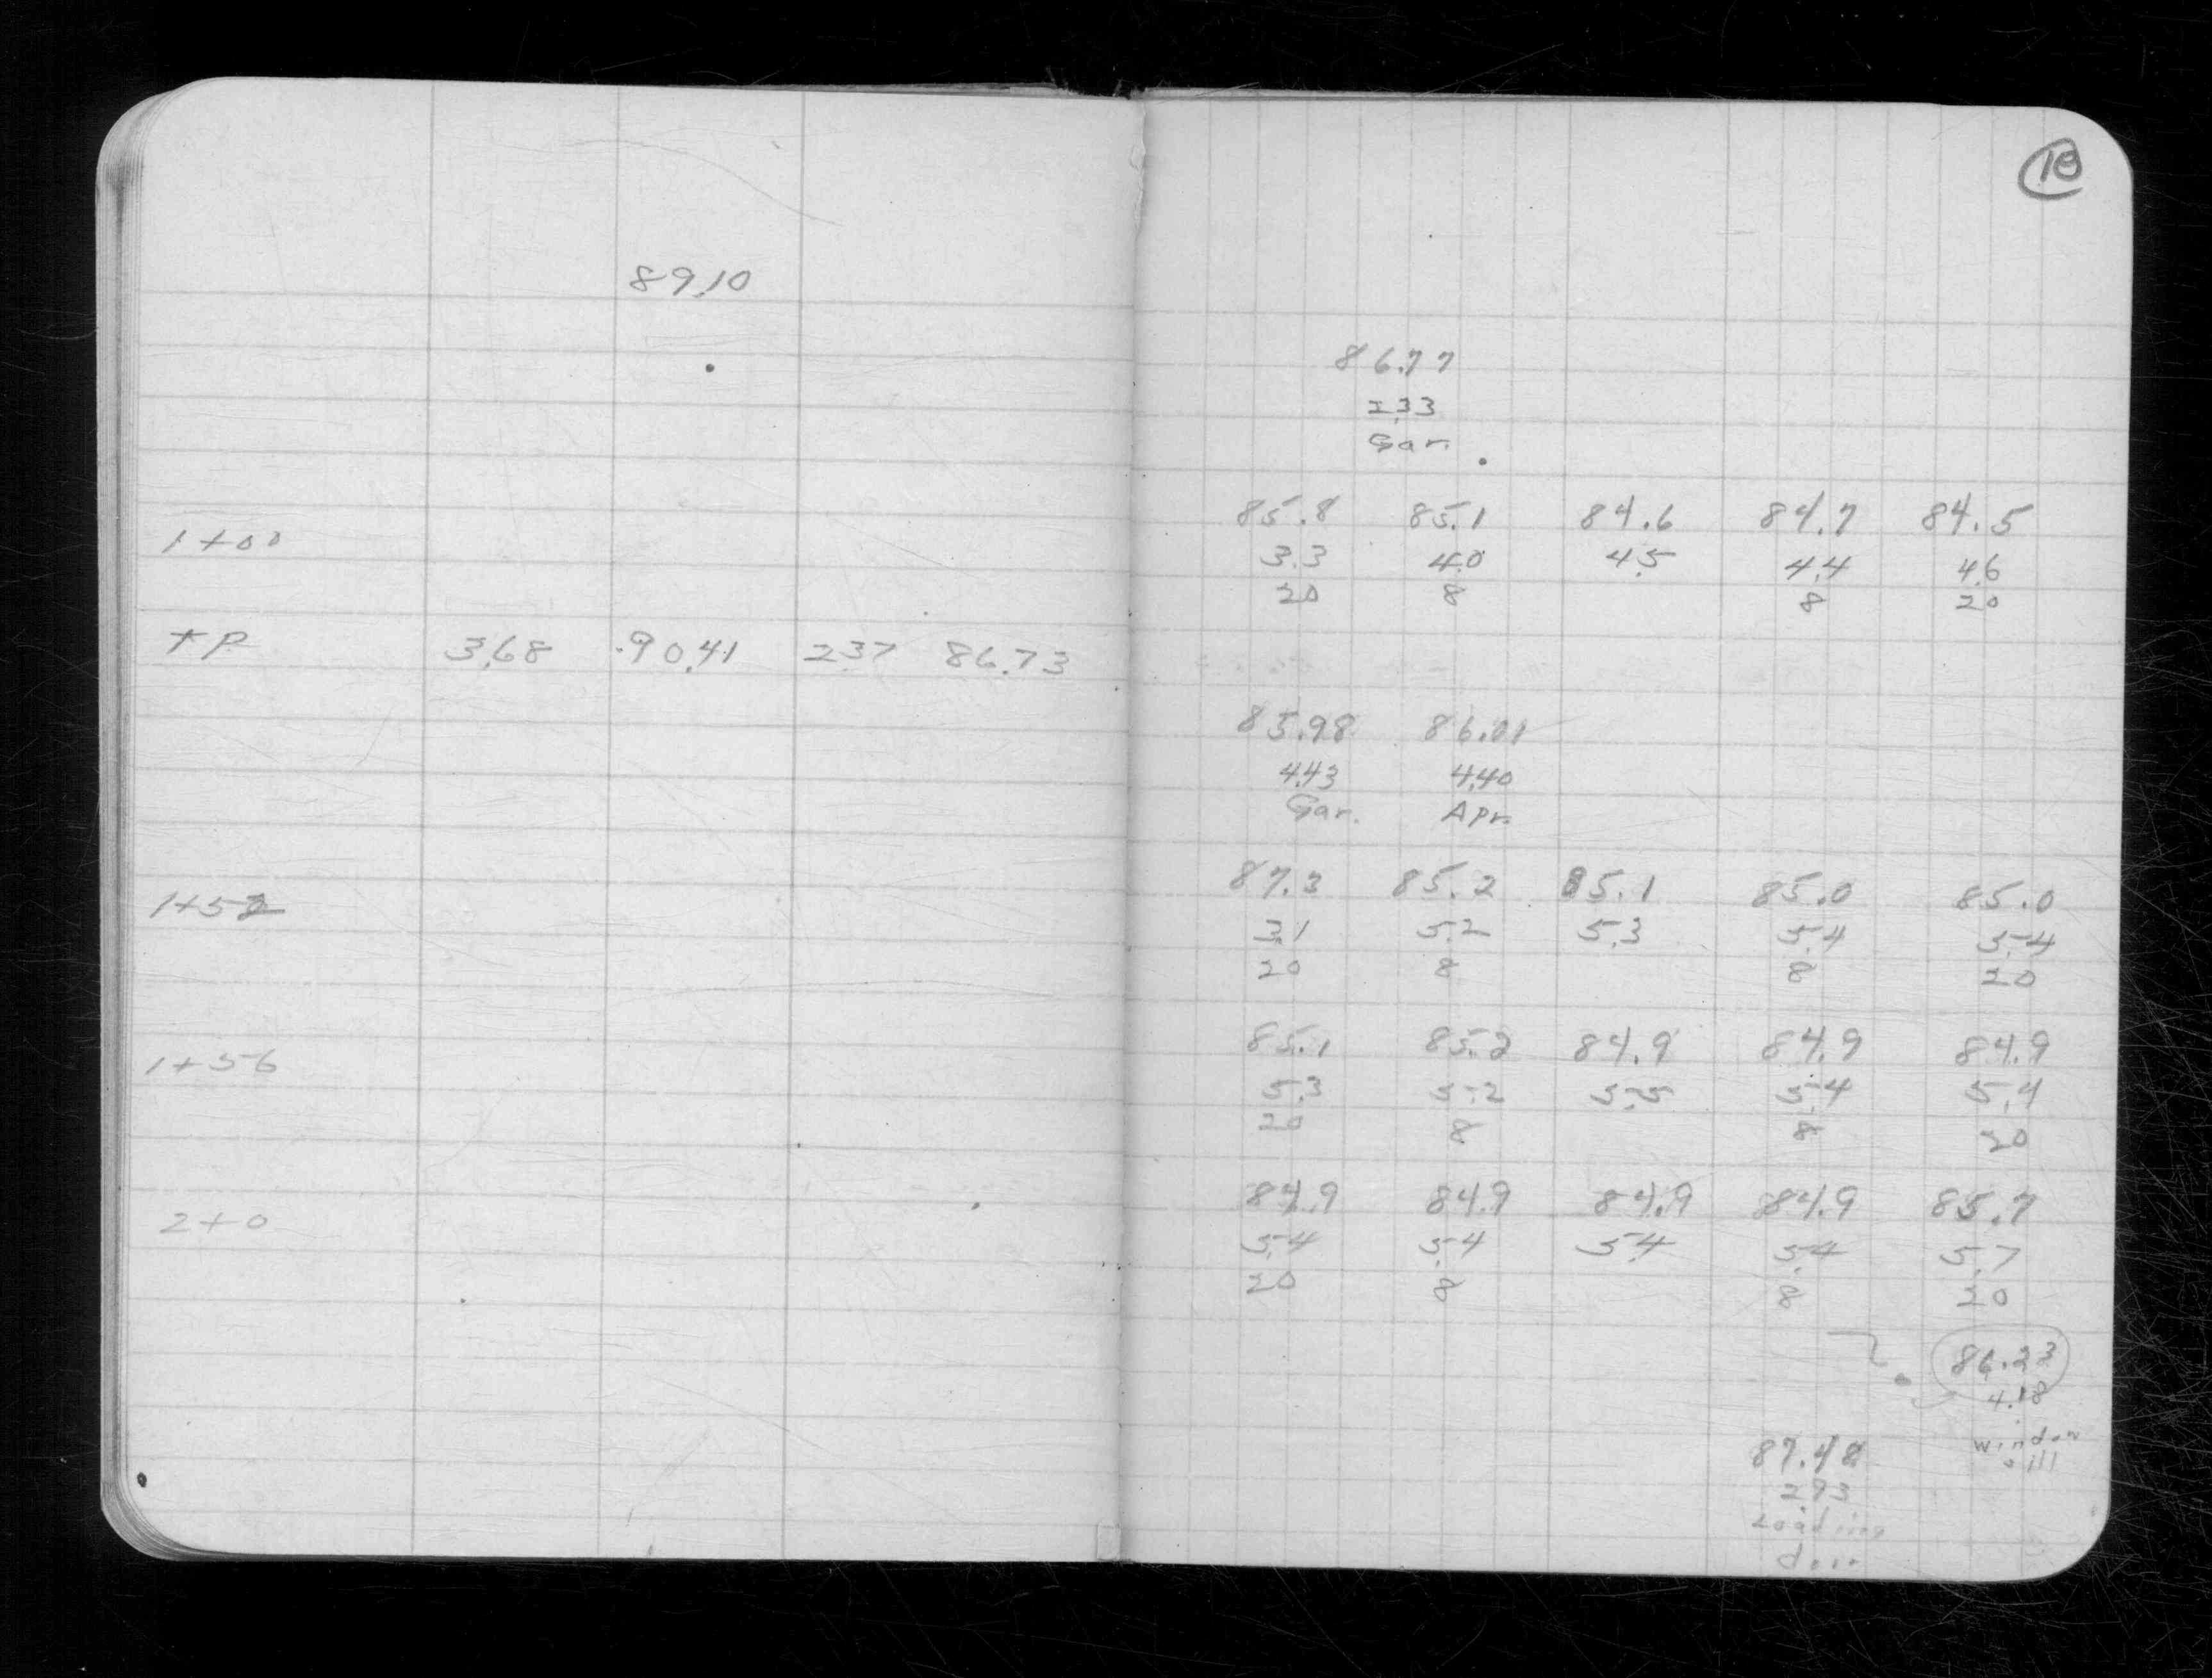 18
89.10
86.77
2.33
Gar.
85.8 85.1 84.6 84.7 84.5
1+00 3.3 4.0 4.5 4.4 4.6
20 8 8 20
TP 3.68 90.41 2.37 86.73
85.98 86.01
4.43 4.40
Gar. Apr.
87.3 85.2 85.1 85.0 85.0
1+52 3.1 5.2 5.3 5.4 5.4
20 8 8 20
85.1 85.2 84.9 84.9 84.9
1+56 5.3 5.2 5.5 5.4 5.4
20 8 8 20
84.9 84.9 84.9 84.9 85.7
2+0 5.4 5.4 5.4 5.4 5.7
20 8 8 20
86.23
4.18
window
sill
87.48
2.93
Loading
door